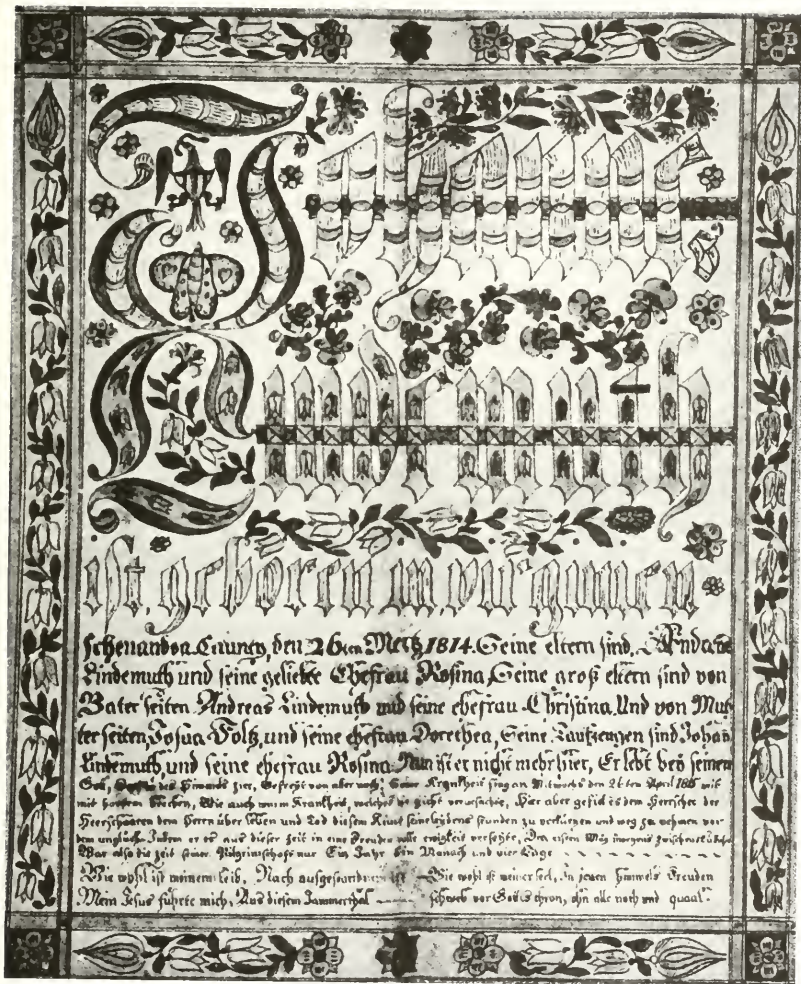 Lindemuth
ist, geboren in, virginien,
schenandoa Caunty, den 26ten Mertz 1814. Seine eltern sind, Andreas
Lindemuth und seine geliebte Ehefrau Rosina, Seine groß eltern sind von
Vater seiten Andreas Lindemuth und seine ehefrau Christina. Und von Mut
ter seiten, Josua Foltz, und seine ehefrau Dorethea, Seine Taufzeugen sind Johan
Lindemuth, und seine ehefrau Rosina. Nun ist er nicht mehr hier, Er lebt bey seinem
Gott, des Himmels Zier, Befreyt von aller noth; Seine Krankheit fing an Mitwochs den April 1815 mit
mit Brechen, Wie auch Krankheit, welches die gicht verursachte, Hier aber gefiel es dem Herrscher der
Heerschaaren dem Herrn über leben und Tod diesem Kind seine leidens stunden zu verkürzen und weg zu nehmen vor
dem unglück Indem er es aus dieser zeit in eine Freuden volle ewigkeit versetzte, Den May morgens zwischen
War also die zeit seiner Pilgrimschaft nur Ein Jahr Ein Monath und vier Tage
Wie wohl ist meinem leib, Nach ausgestandnem Wie wohl ist meiner seel, In jenen himmels Freuden
Mein Jesus führte mich, Aus diesem Jammerthal schweb vor Gottes thron, ohn alle noth und quaal.